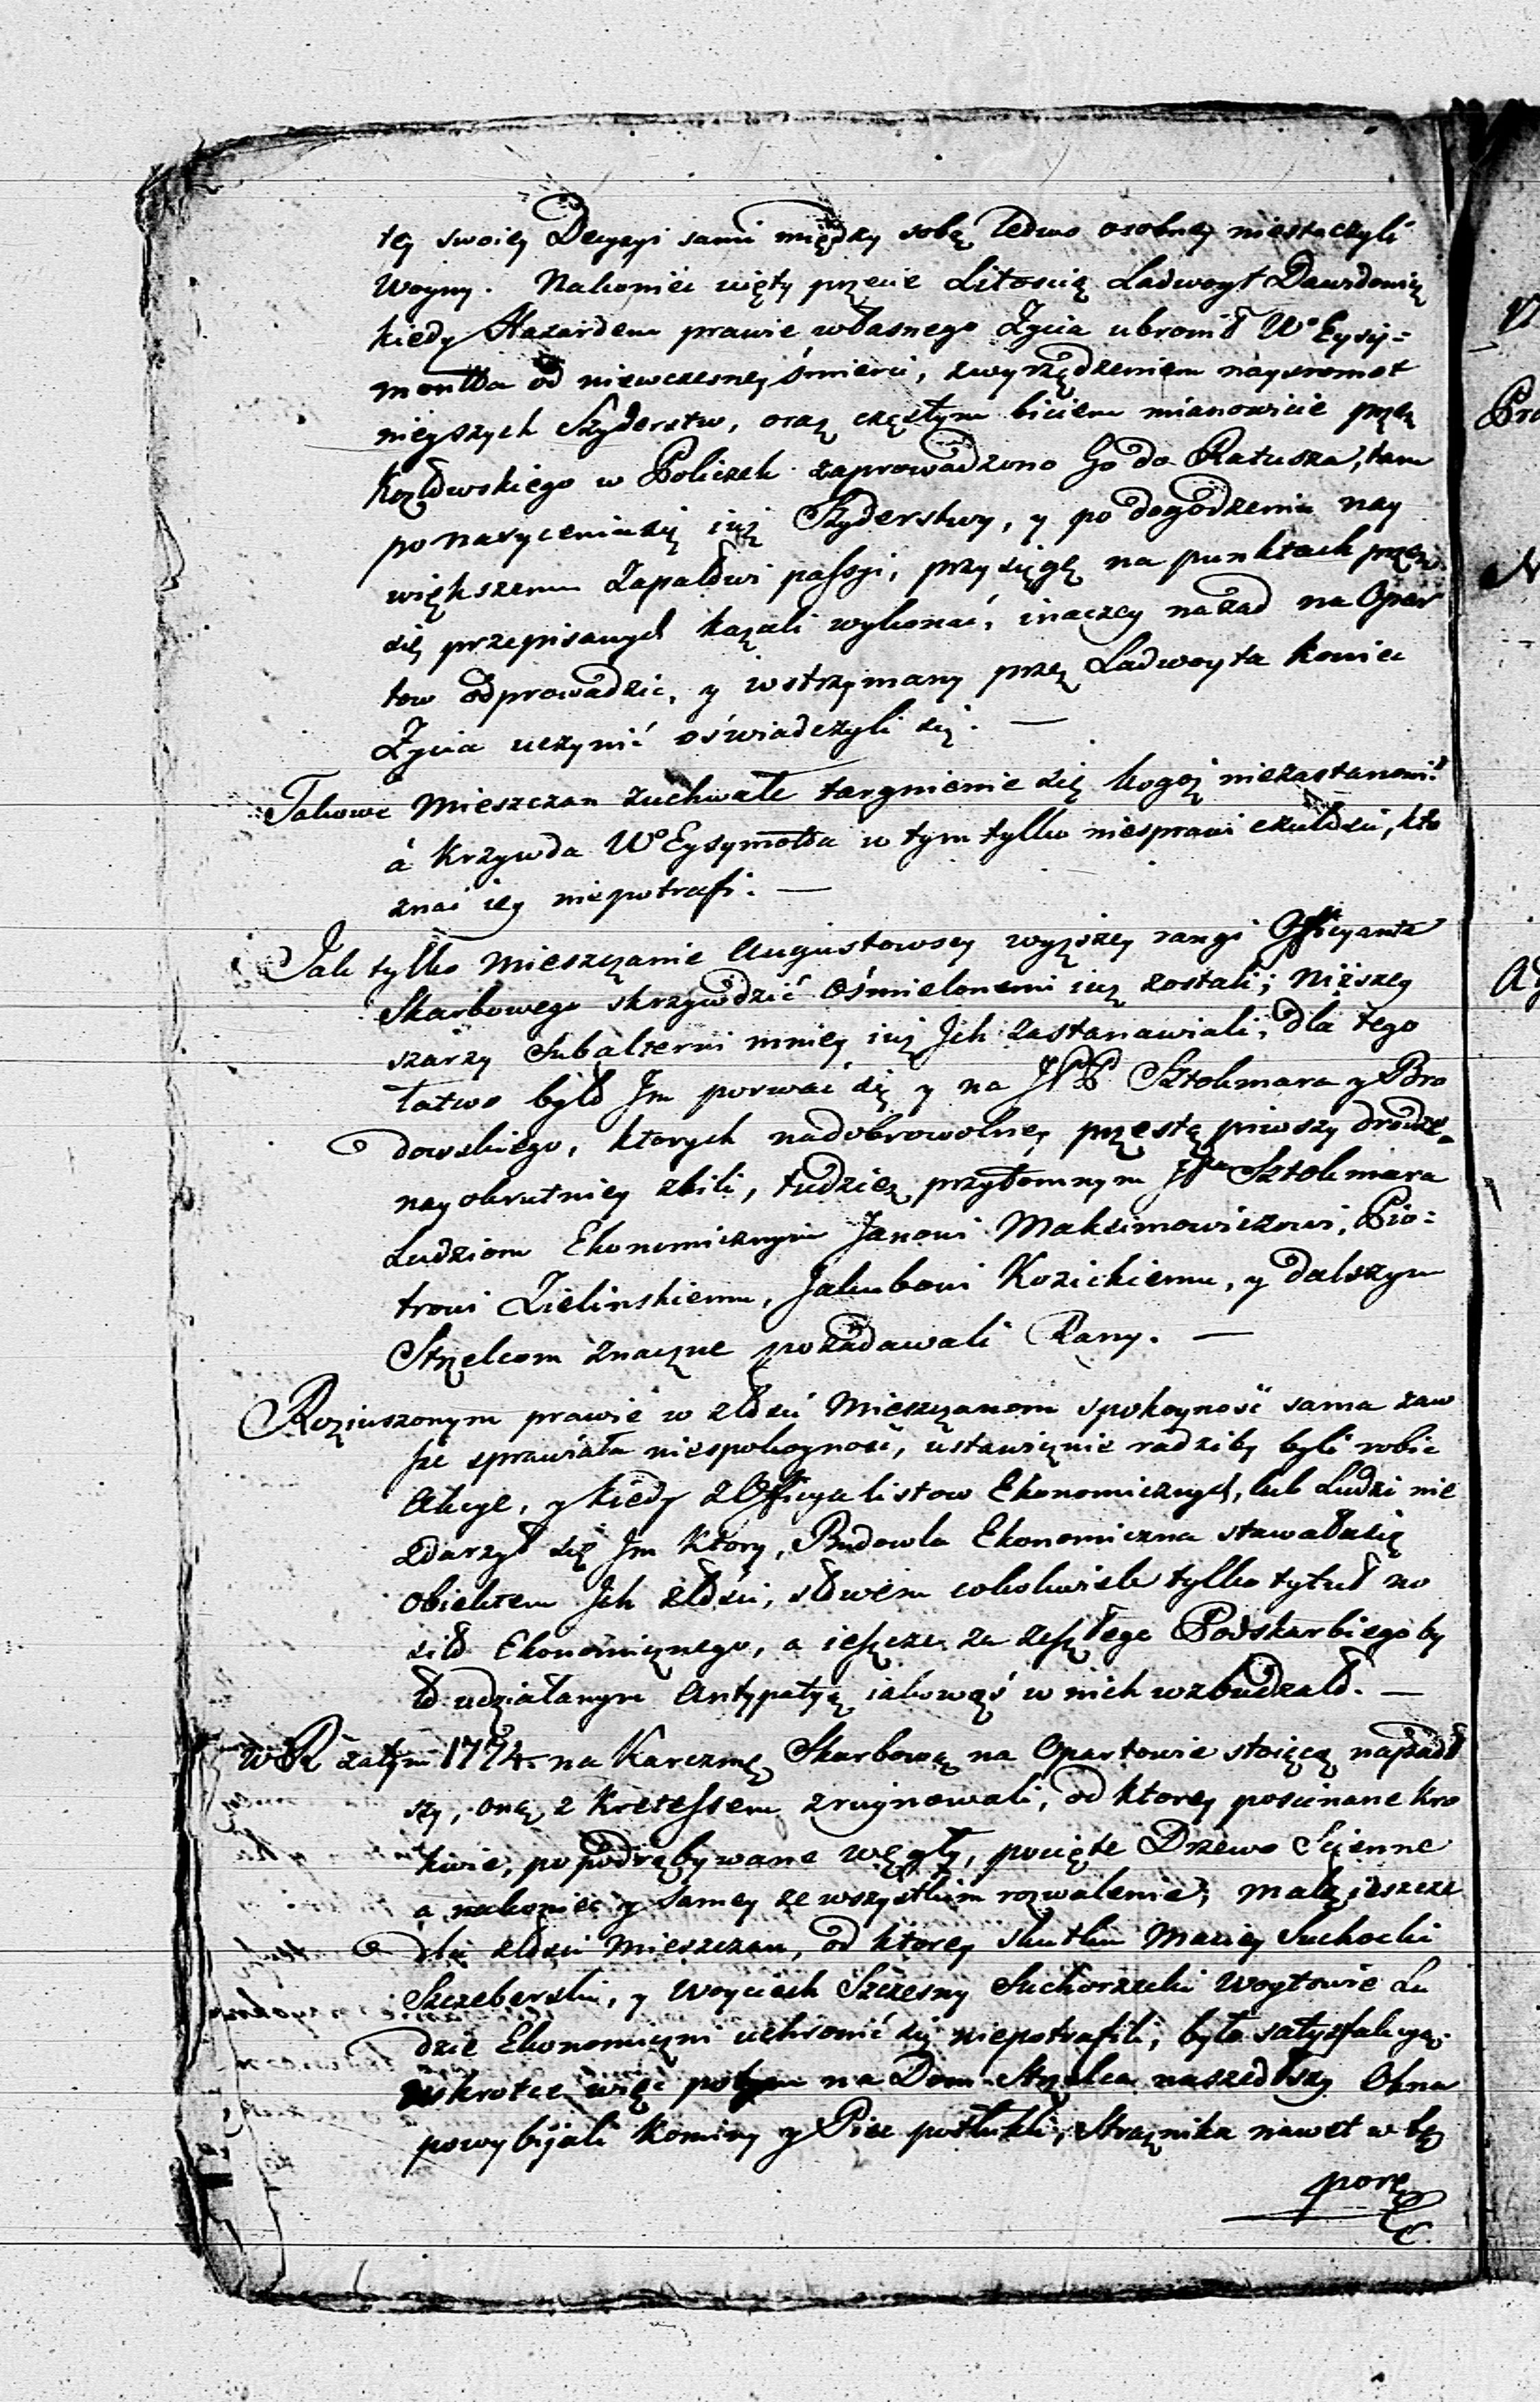 tey swoiey Decyzyi sami między sobą ledwo osobney niestoczyli
Woyny. Nakoniec zięty przecie Litością Ladwoyt Dawidowicz
kiedy Hazardem prawie własnego Zycia ubronił Wo Eysy=
montta od niewczesney śmierci, zwyrządzeniem naysromot
nieyszych Szyderstw, oraz częstym biciem mianowicie przez
Kozłowskiego w Policzek zaprowadzono Go do Ratusza, tam
po nasyceniu się iuż Szyderstwy, y po dogodzeniu nay
większemu Zapałowi passyi, przysięgę na punktach przez
się przepisanych kazali wykonać, inaczey nazad na Opar
tow odprowadzić, y wstrzymany przez Ladwoyta koniec
Zycia uczynić oświadczyli się. —
Takowe Mieszczan zuchwałe targnienie się kogoż niezastanowi?
á Krzywda Wo Eysymotta w tym tylko niesprawi czułości, kto
znać iey niepotrafi. —
Jak tylko Mieszczanie Augustowscy wyższey rangi Officyanta
Skarbowego skrzywdzić Ośmielonemi iuż zostali; Niższey
szarzy Subalterni mniey iuż Ich zastanawiali, dla tego
łatwo było Im porwać się y na JPP Sztokmara y Bro
dowskiego, ktorych nadobrowolney przestę pierwszy drodze
nayokrutniey zbili, tudzież przytomnym JPa Sztokmara
Ludziom Ekonomicznym Janowi Maksimowiczowi, Pio=
trowi Zielinskiemu, Jakubowi Kozickiemu, y dalszym
Strzelcom znaczne pozadawali Rany. —
Rozjuszonym prawie w złości Mieszczanom spokoyność sama zaw
sze sprawiała niespokoyność, ustawicznie radziby byli robić
Akcye, y kiedy z Officyalistow Ekonomicznych, lub Ludzi nie
zdarzył się Im ktory, Budowla Ekonomiczna stawała się
obiektem Ich złości, słowem cokolwiek tylko tytuł no
siło Ekonomicznego, a ieszcze za zeszłego Podskarbiego by
ło udziałanym Antypatyą iakowąś w nich wzbudzało. —
W R. zatym 1774. na Karczmę Skarbową na Opartowie stoiącą napadł
szy, onę z kretessem zruynowali, od ktorey poscinane kro
kwie, popodrąbywane węgły, pocięte Drzewo Scienne
a nakoniec y samey ze wszystkim rozwalenie, małą ieszcze
dla złości Mieszczan, od ktorey skutku Maciey Suchocki
Szczeberski, y Woyciech Szczesny Suchorzecki Woytowie Lu
dzie Ekonomiczni uchronić się niepotrafili, było satysfakcyą.
Wkrotce więc potym na Dom Strzelca naszedłszy Okna
powybijali Kominy y Piec potłukli, Strażnika nawet w tę
porę